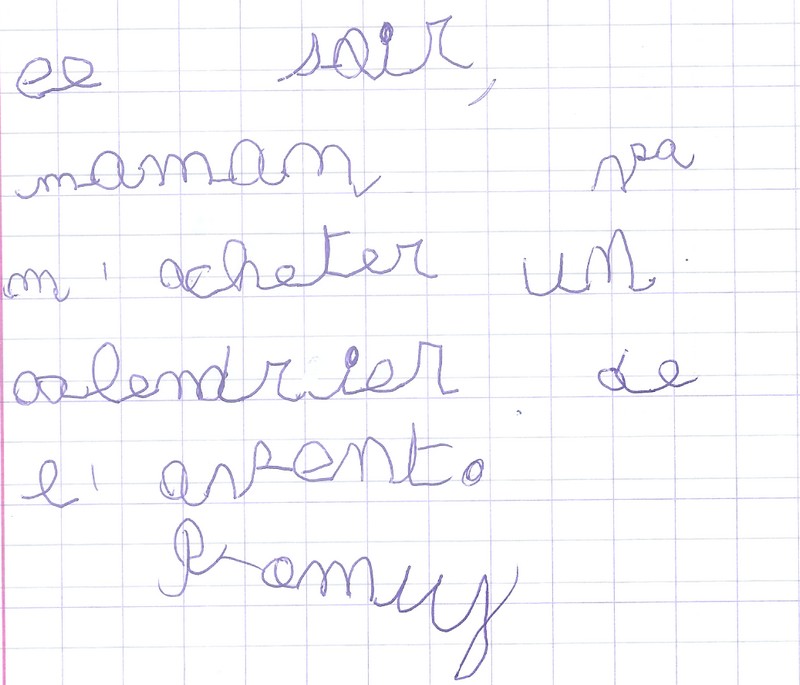 ce soir,
maman va
m'acheter un
calendrier de
l'avent.
Romuy